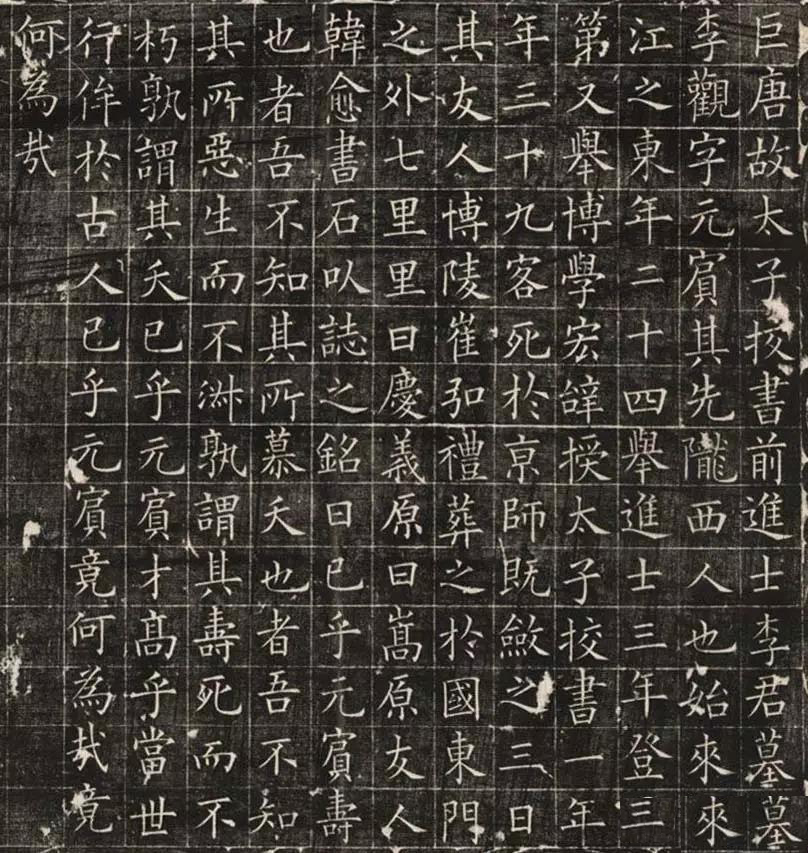 巨唐故太子挍書前進士李君墓墓
李觀字元賔其先隴西人也始來來
江之東年二十四舉進士三年登三
第又舉博學宏辭授太子挍書一年
年三十九客死於京師既斂之三日
其友人博陵崔弘禮葬之於國東門
之外七里里曰慶義原曰嵩原友人
韓愈書石以誌之銘曰已乎元賔壽
也者吾不知其所慕夭也者吾不知
其所惡生而不淑孰謂其壽死而不
朽孰謂其夭已乎元賔才高乎當世
行侔於古人已乎元賔竟何為哉竟
何為哉